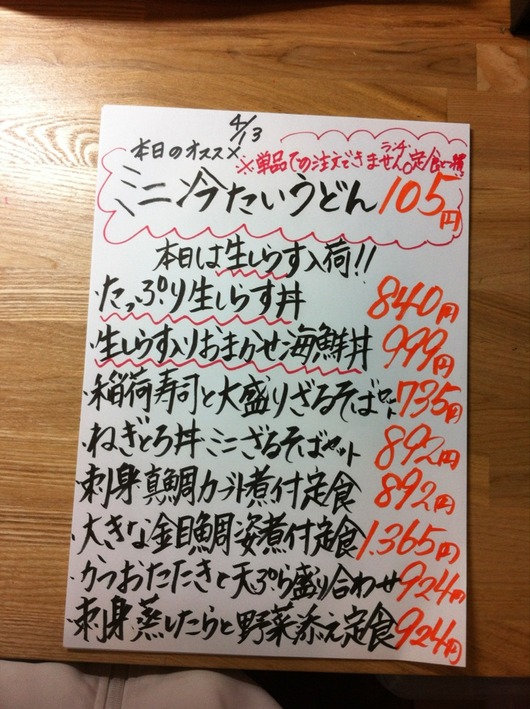 4/13
本日のオススメ
※単品での注文できません。ランチ定食と一緒に
ミニ冷たいうどん 105円
本日は生しらす入荷!!
・たっぷり生しらす丼 840円
・生しらす入りおまかせ海鮮丼 999円
・稲荷寿司と大盛りざるそばセット 735円
・ねぎとろ丼ミニざるそばセット 892円
・刺身真鯛カブト煮付定食 892円
・大きな金目鯛姿煮付定食 1.365円
・かつおたたきと天ぷら盛り合わせ 924円
・刺身蒸したらと野菜添え定食 924円